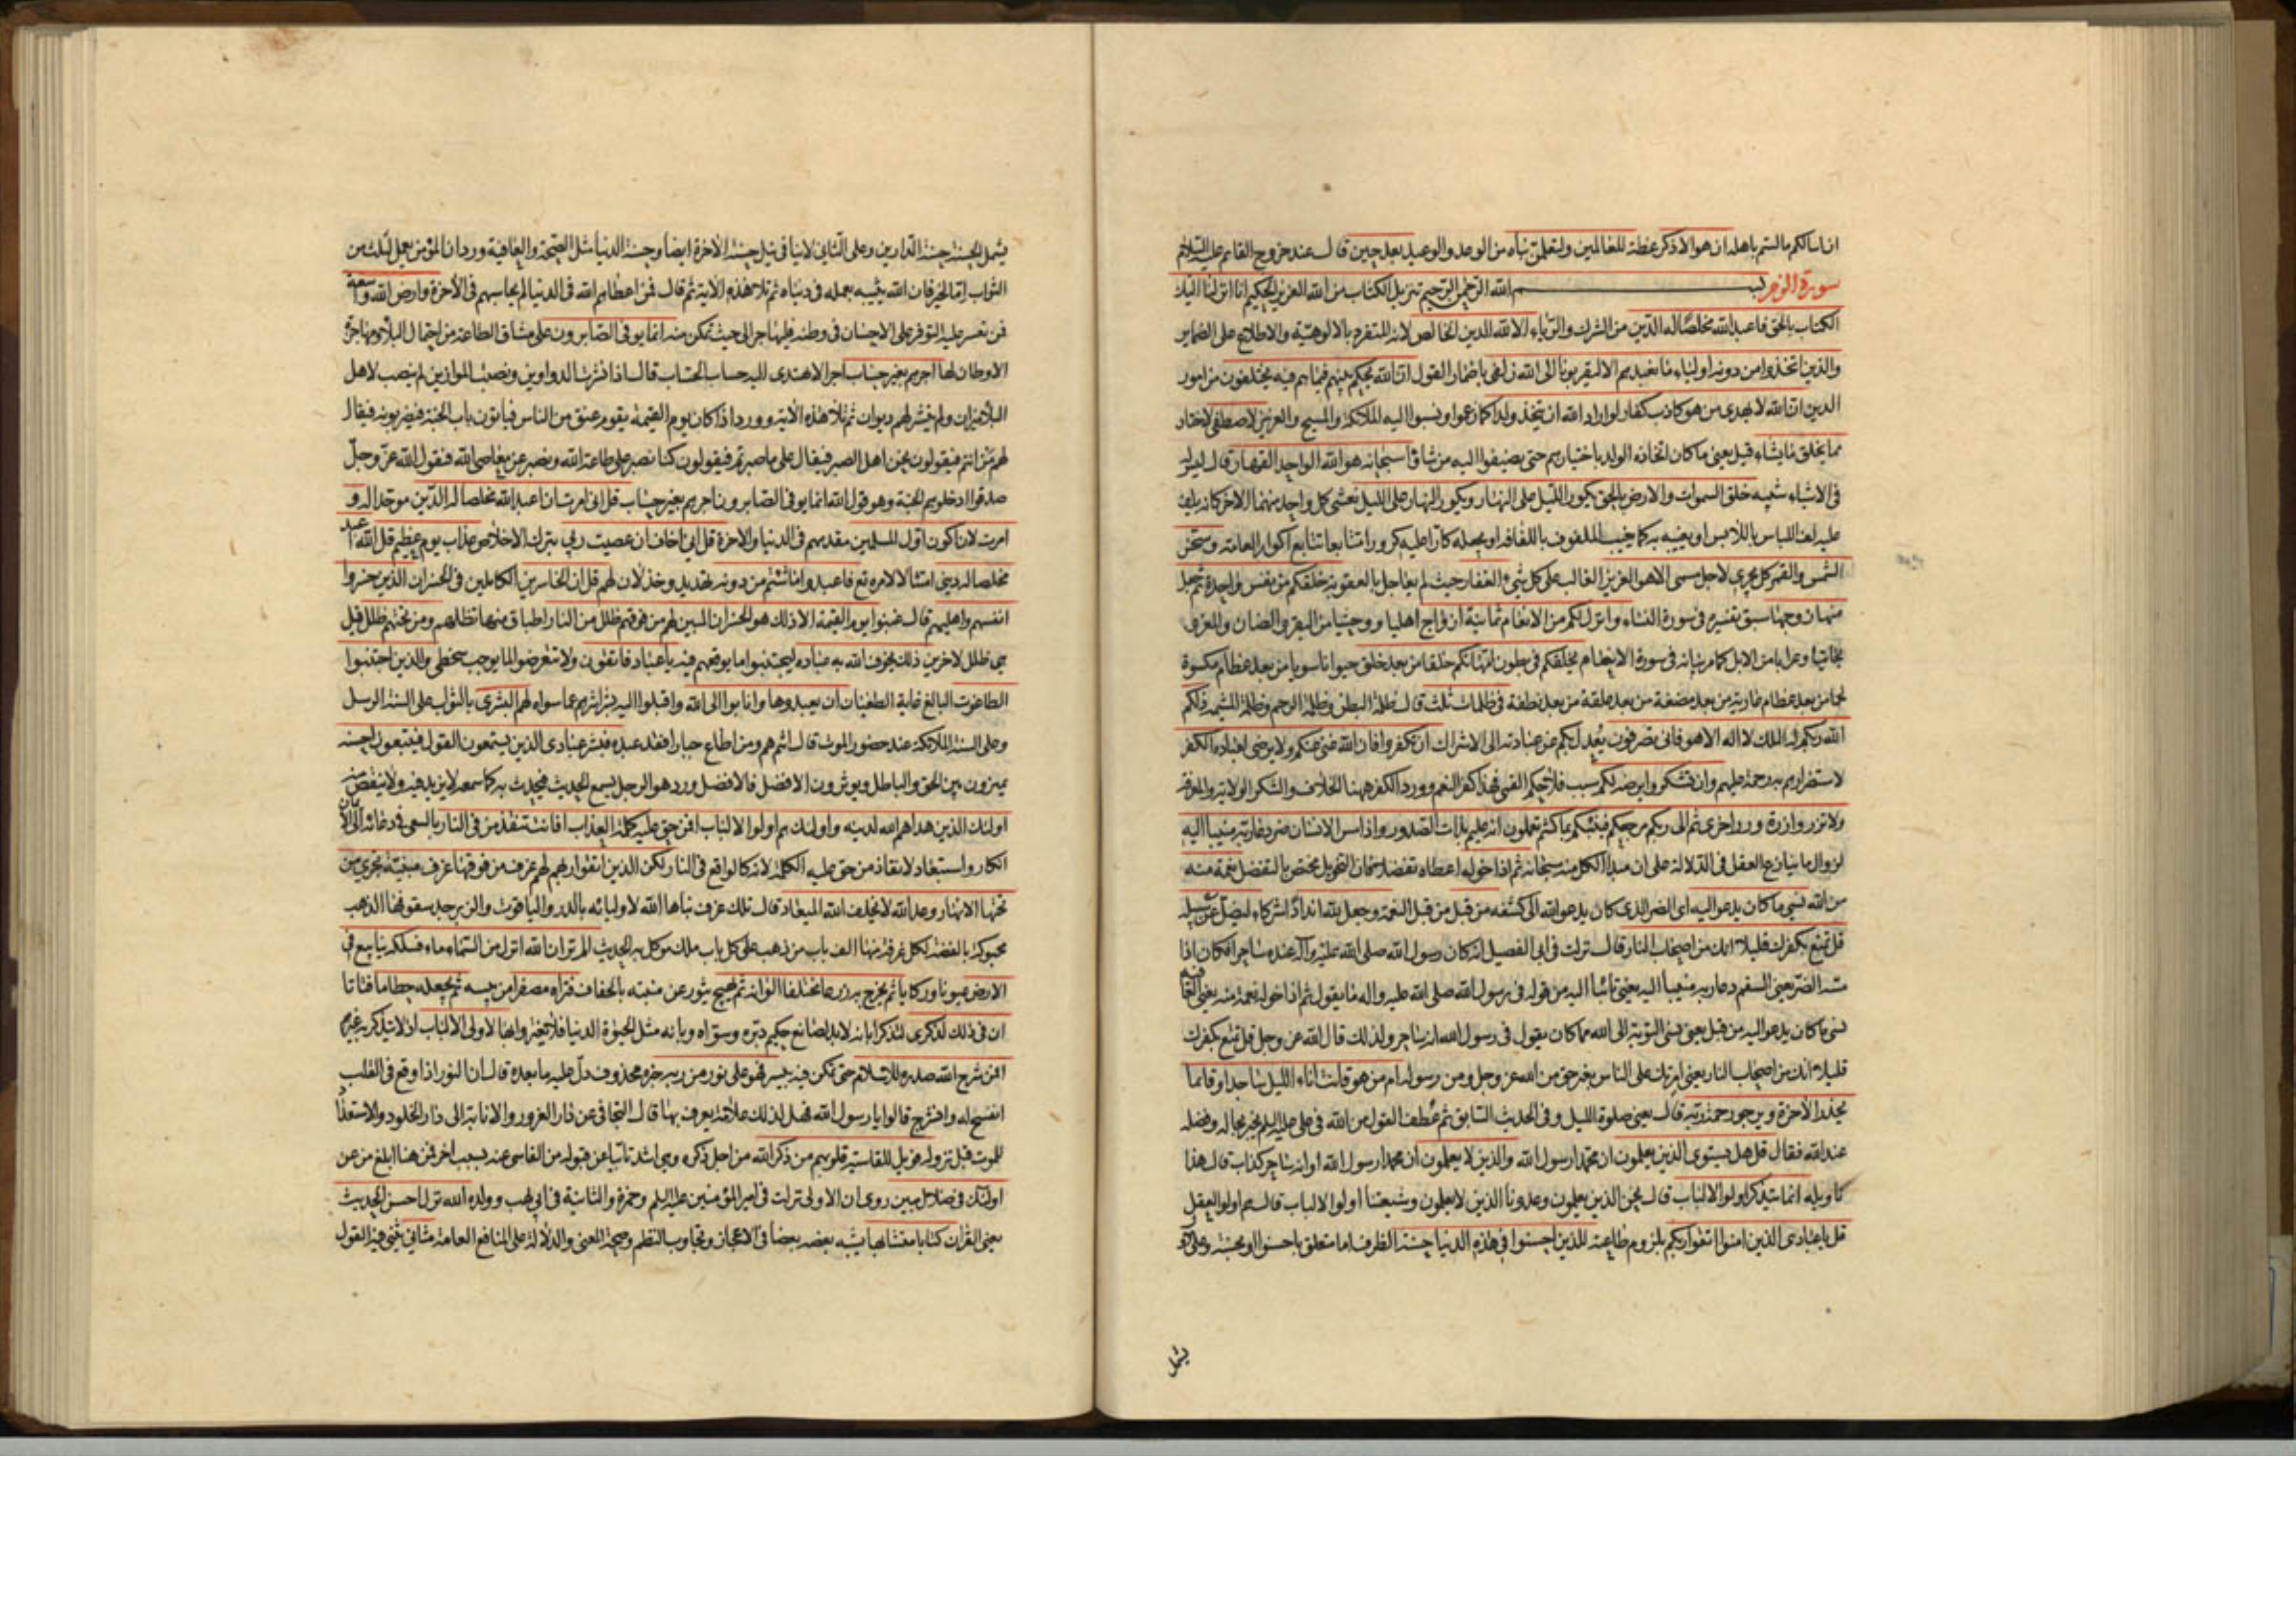 ان اسالكم ما لستم باهله ان هو الا ذكر عظة للعالمين ولتعلمن نباه من الوعد والوعيد بعد حين قال عند خروج القائم عليه السلام
سورة الزمر بسم الله الرحمن الرحيم تنزيل الكتاب من الله العزيز الحكيم انا انزلنا اليك
الكتاب بالحق فاعبد الله مخلصا له الدين من الشرك والرياء الا لله الدين الخالص لانه المتفرد بالالوهية والاطلاع على الضماير
والذين اتخذوا من دونه اولياء ما نعبدهم الا ليقربونا الى الله زلفى باضمار القول ان الله يحكم بينهم فيما هم فيه يختلفون من امور
الدين ان الله لا يهدى من هو كاذب كفار لو اراد الله ان يتخذ ولدا كما زعموا ونسبوا اليه الملائكة والمسيح والعزير لاصطفى لاختار
مما يخلق ما يشاء قيل يعنى ما كان اتخاذه الولد باختيارهم حتى يضيفوا اليه من شاؤا سبحانه هو الله الواحد القهار قال ليس له
فى الاشياء شبيه خلق السموات والارض بالحق يكور الليل على النهار ويكور النهار على الليل يغشى كل واحد منهما الاخر كانه يلف
عليه لف اللباس باللابس او يغيبه به كما يغيب الملفوف باللفافه او يجعله كارا عليه كرورا متتابعا تتابع اكوار العمامة وسخر
الشمس والقمر كل يجرى لاجل مسمى الا هو العزيز الغالب على كل شىء الغفار حيث لم يعاجل بالعقوبة خلقكم من نفس واحدة ثم جعل
منها زوجها سبق تفسيره فى سورة النساء وانزل لكم من الانعام ثمانية ازواج اهليا ووحشيا من البقر والضان والمعز و
بخاتيا وعرابا من الابل كما مر بيانه فى سورة الانعام يخلقكم فى بطون امهاتكم خلقا من بعد خلق حيوانا سويا من بعد عظام مكسوة
لحما من بعد عظام عارية من بعد مضغة من بعد علقة من بعد نطفة فى ظلمات ثلث قال ظلمة البطن وظلمة الرحم وظلمة المشيمة ذلكم
الله ربكم له الملك لا اله الا هو فانى تصرفون يعدل بكم عن عبادته الى الاشراك ان تكفروا فان الله غنى عنكم ولا يرضى لعباده الكفر
لاستضرارهم به رحمة عليهم وان تشكروا يرضه لكم سبب فلاحكم القمى فهذا كفر النعم وورد الكفر ههنا الخلاف والشكر الولاية والمعرفة
ولا تزر وازرة وزر اخرى ثم الى ربكم مرجعكم فينبئكم بما كنتم تعملون انه عليم بذات الصدور واذا مس الانسان ضر دعا ربه منيبا اليه
لزوال ما ينازع العقل فى الدلالة على ان مبدأ الكل منه سبحانه ثم اذا خوله اعطاه تفضلا فان التخويل مختص بالتفضل نعمة منه
من الله نسى ما كان يدعوا اليه اى الضر الذى كان يدعو الله الى كشفه من قبل من قبل النعمة وجعل لله اندادا شركاء ليضل عن سبيله
قل تمتع بكفرك قليلا انك من اصحاب النار قال نزلت فى ابى الفصيل انه كان رسول الله صلى الله عليه وآله عنده ساحرا فكان اذا
مسه الضر يعنى السقم دعا ربه منيبا اليه يعنى تائبا اليه من قوله فى رسول الله صلى الله عليه واله ما يقول ثم اذا خوله نعمة منه يعنى العافيه
نسى ما كان يدعو اليه من قبل يعنى نسى التوبة الى الله مما كان يقول فى رسول الله انه ساحر ولذلك قال الله عز وجل قل تمتع بكفرك
قليلا انك من اصحاب النار يعنى امرتك على الناس بغير حق من الله عز وجل ومن رسوله ام من هو قانت آناء الليل ساجدا وقائما
يحذر الآخرة ويرجو رحمة ربه قال يعنى صلوة الليل وفى الحديث السابق ثم عطف القول من الله فى على عليه السلم يخبر بحاله وفضله
عند الله فقال قل هل يستوى الذين يعلمون ان محمدا رسول الله والذين لا يعلمون ان محمدا رسول الله او انه ساحر كذاب قال هذا
تاويله انما يتذكر اولوا الالباب قال نحن الذين يعلمون وعدونا الذين لا يعلمون وشيعتنا اولوا الالباب قال هم اولوا العقل
قل يا عبادى الذين امنوا اتقوا ربكم بلزوم طاعته للذين احسنوا فى هذه الدنيا حسنة الظرف اما متعلق باحسنوا او بحسنة وعلى الاول
يشمل
يشمل الحسنة حسنة الدارين وعلى الثانى لا ينافى نيل حسنة الآخرة ايضا وحسنة الدنيا مثل الصحة والعافية ورد ان المؤمن يعمل لثلث من
الثواب اما لخير فان الله يثيبه بعمله فى دنياه ثم تلا هذه الآية ثم قال فمن اعطاهم الله فى الدنيا لم يحاسبهم فى الآخرة وارض الله واسعة
فمن تعسر عليه التوفر على الاحسان فى وطنه فليهاجر الى حيث تمكن منه انما يوفى الصابرون على مشاق الطاعة من احتمال البلاء ومهاجرة
الاوطان لها اجرهم بغير حساب اجرا لا يهتدى اليه حساب الحساب قال اذا نشرت الدواوين ونصبت الموازين لم ينصب لاهل
البلاء ميزان ولم ينشر لهم ديوان ثم تلا هذه الآية وورد اذا كان يوم القيمة يقوم عنق من الناس فياتون باب الجنة فيضربونه فيقال
لهم من انتم فيقولون نحن اهل الصبر فيقال على ما صبرتم فيقولون كنا نصبر على طاعة الله ونصبر عن معاصى الله فيقول الله عز وجل
صدقوا ادخلوهم الجنة وهو قول الله انما يوفى الصابرون اجرهم بغير حساب قل انى امرت ان اعبد الله مخلصا له الدين موحدا له و
امرت لان اكون اول المسلمين مقدمهم فى الدنيا والآخرة قل انى اخاف ان عصيت ربى بترك الاخلاص عذاب يوم عظيم قل الله اعبد
مخلصا له دينى امتثالا لامره تع فاعبدوا ما شئتم من دونه تهديد وخذلان لهم قل ان الخاسرين الكاملين فى الخسران الذين خسروا
انفسهم واهليهم قال غبنوا يوم القيمة الا ذلك هو الخسران المبين لهم من فوقهم ظلل من النار اطباق منها تظلهم ومن تحتهم ظلل قيل
هى ظلل لاخرين ذلك يخوف الله به عباده ليجتنبوا ما يوقعهم فيه يا عباد فاتقون ولا تتعرضوا لما يوجب سخطى والذين اجتنبوا
الطاغوت البالغ غاية الطغيان ان يعبدوها وانابوا الى الله واقبلوا اليه بشراشرهم عما سواه لهم البشرى بالثواب على السنة الرسل
وعلى السنة الملائكة عند حضور الموت قال انتم هم ومن اطاع جبارا فقد عبده فبشر عبادى الذين يستمعون القول فيتبعون احسنه
يميزون بين الحق والباطل ويوثرون الافضل فالافضل ورد هو الرجل يسمع الحديث فيحدث به كما سمعه لا يزيد فيه ولا ينقص منه
اولئك الذين هداهم الله لدينه واولئك هم اولوا الالباب افمن حق عليه كلمة العذاب افانت تنقذ من فى النار بالسعى فى دعائه الى الايمان
انكار واستبعاد لانقاذ من حق عليه الكلمة لانه كالواقع فى النار لكن الذين اتقوا ربهم لهم غرف من فوقها غرف مبنية تجرى من
تحتها الانهار وعد الله لا يخلف الله الميعاد قال تلك غرف بناها الله لاوليائه بالدر والياقوت والزبرجد سقوفها الذهب
محبوكة بالفضة لكل غرفة منها الف باب من ذهب على كل باب ملك موكل به الحديث الم تر ان الله انزل من السماء ماء فسلكه ينابيع فى
الارض عيونا وركايا ثم يخرج به زرعا مختلفا الوانه ثم يهيج يثور عن منبته بالجفاف فتراه مصفرا من يبسه ثم يجعله حطاما فتاتا
ان فى ذلك لذكرى لتذكرا بانه لا بد من صانع حكيم دبره وسواه وبانه مثل الحيوة الدنيا فلا تغتروا بها لاولى الالباب اذ لا يتذكر به غيرهم
افمن شرح الله صدره للاسلام حتى تمكن فيه بيسر فهو على نور من ربه خبره محذوف دل عليه ما بعده قال ان النور اذا وقع فى القلب
انفسح له وانشرح قالوا يا رسول الله فهل لذلك علامة يعرف بها قال التجافى عن دار الغرور والانابة الى دار الخلود والاستعداد
للموت قبل نزوله فويل للقاسية قلوبهم من ذكر الله من اجل ذكره وهى اشد تابيا عن قبوله من القاسى عنه بسبب اخر فمن هنا ابلغ من عن
اولئك فى ضلال مبين روى ان الاولى نزلت فى امير المؤمنين عليه السلم وحمزة والثانية فى ابى لهب وولده الله نزل احسن الحديث
يعنى القران كتابا متشابها يشبه بعضه بعضا فى الاعجاز وتجاوب النظم وصحة المعنى والدلالة على المنافع العامة مثانى ثنى فيه القول